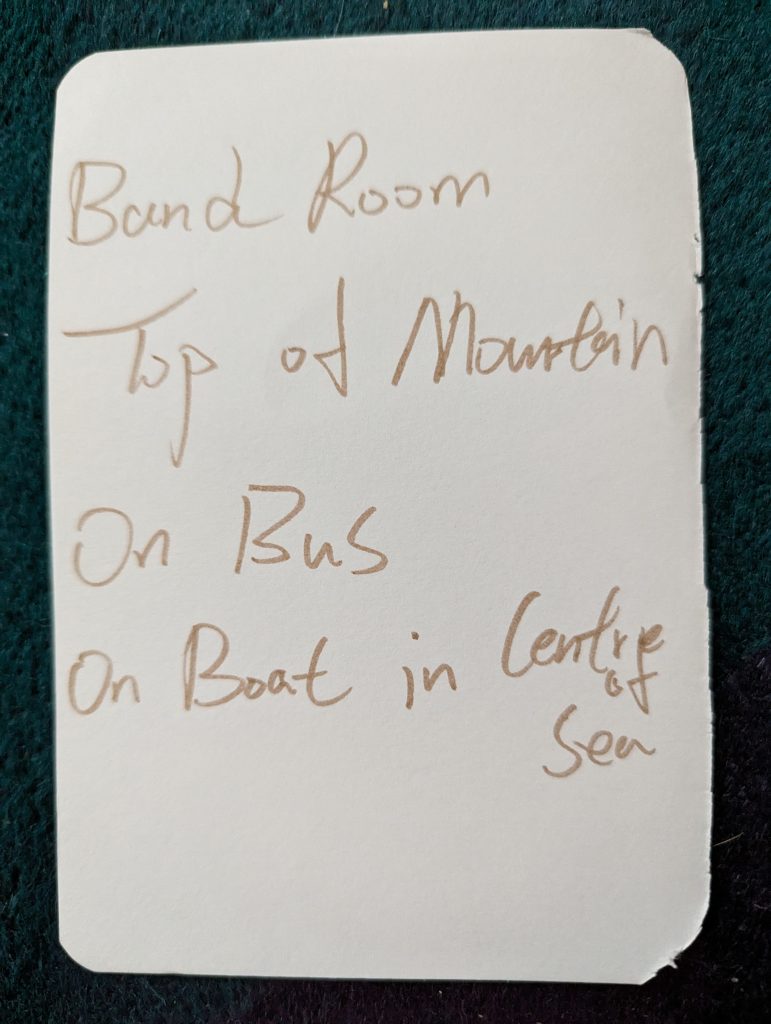 Band Room
Top of Mountain
On Bus
On Boat in Centre
of
Sea